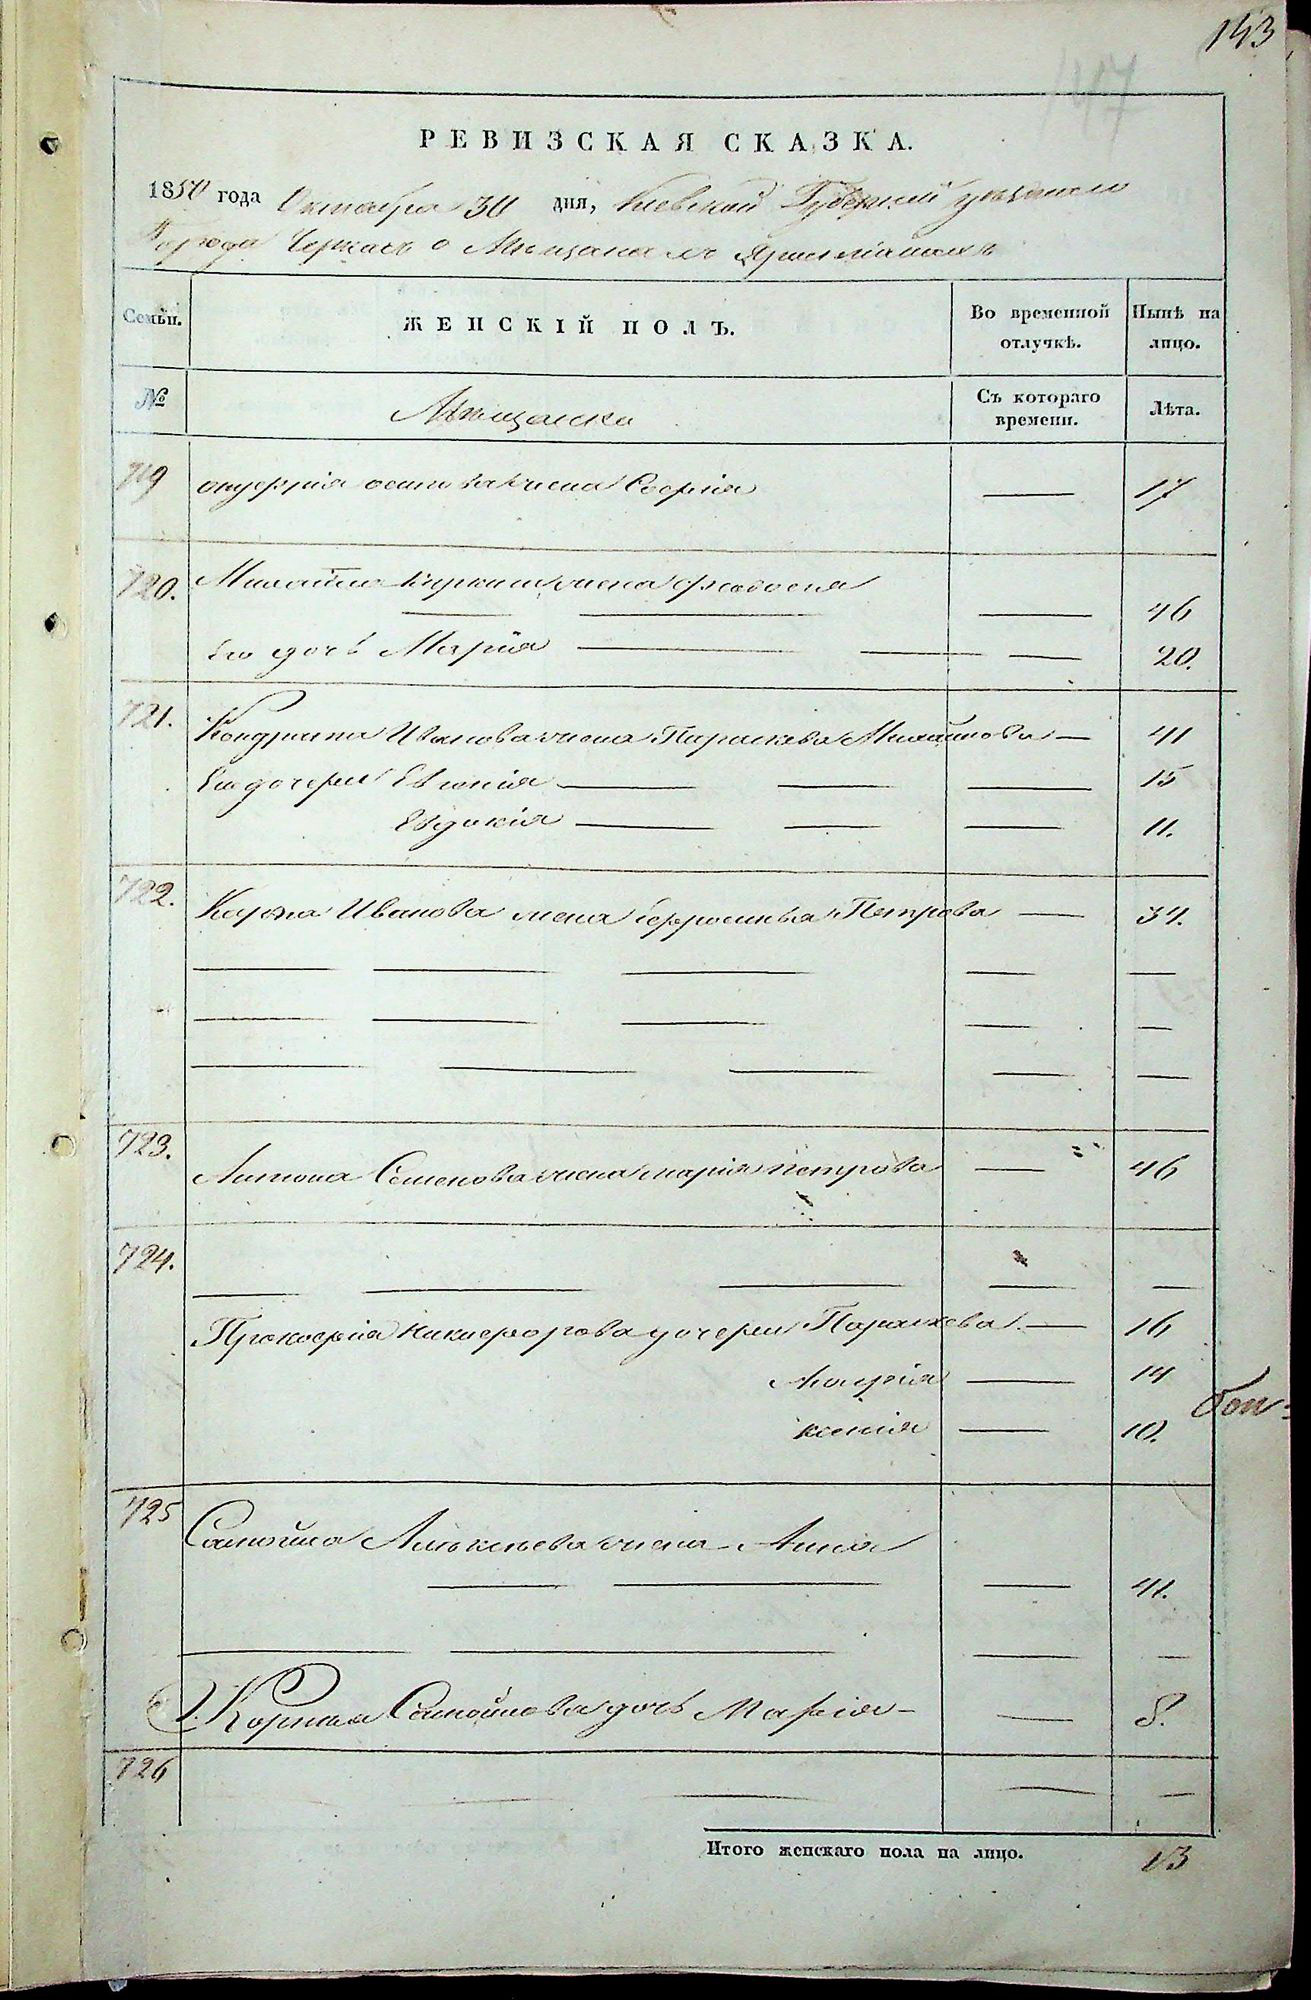 143
147
РЕВИЗСКАЯ СКАЗКА.
1850 года Октября 30 дня, Киевской Губернии уезднаго
Города Черкасъ о Мещанахъ Христіанахъ
Семьи. ЖЕНСКІЙ ПОЛЪ. Во временной отлучкѣ. Нынѣ на лицо.
№ Мещански Съ котораго времени. Лѣта.
719 Онуфрія жена Софія — 17
720. Михайла жена Феодосія
— — — 46
Его дочь Марія — — — 20.
721. Кондрата Иванова жена Параскева Михайлова — 41
Его дочери Евгенія — — — 15
Евдокія — — — 11.
722. Карпа Иванова жена Ефросинья Петрова — 34.
— — — — —
— — — — —
— — — — —
723. Антона Семенова жена Марія Петрова — 46
724. — — — — —
Прокофія Никифорова дочери Параскева — 16
Марія — 14
Ксенія — 10.
725 Самойла Алексѣева жена Анна
— — — 41.
— — — —
Корнея Самойлова дочь Марія — — 8.
726 — — —
Итого женскаго пола на лицо. 13